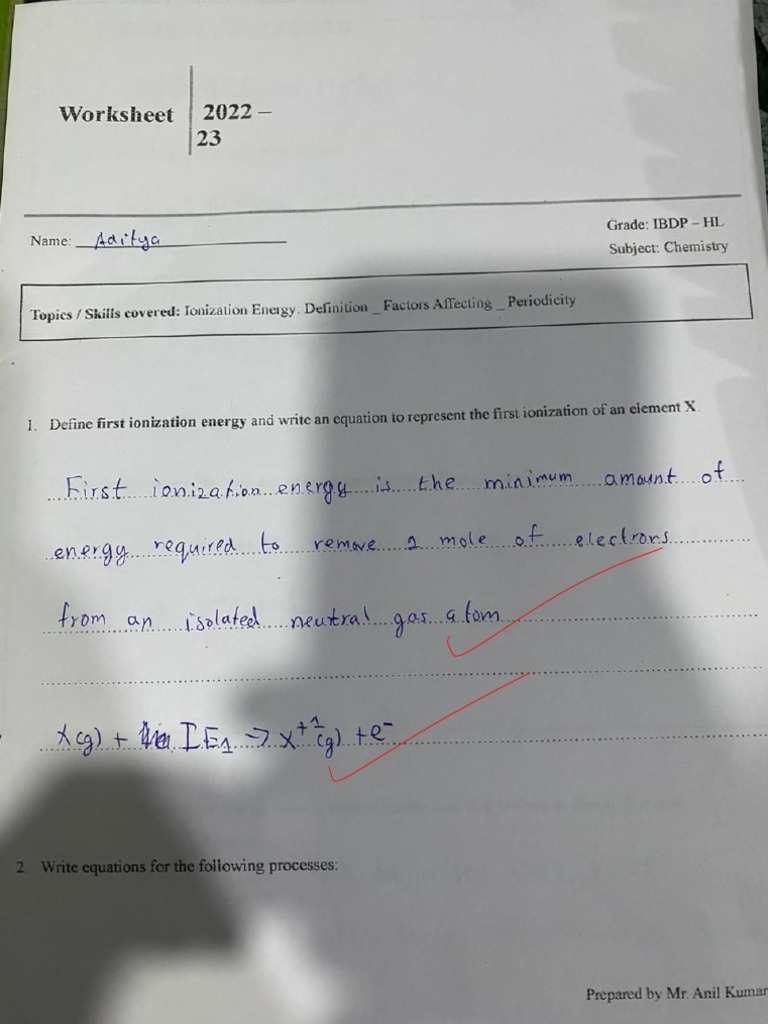 Worksheet 2022 –
23
Name: Aditya
Grade: IBDP – HL
Subject: Chemistry
Topics / Skills covered: Ionization Energy: Definition _ Factors Affecting _ Periodicity
1. Define first ionization energy and write an equation to represent the first ionization of an element X.
First ionization energy is the minimum amount of
energy required to remove 1 mole of electrons
from an isolated neutral gas atom
X(g) + IE1 → X+1(g) + e-
2. Write equations for the following processes:
Prepared by Mr. Anil Kumar